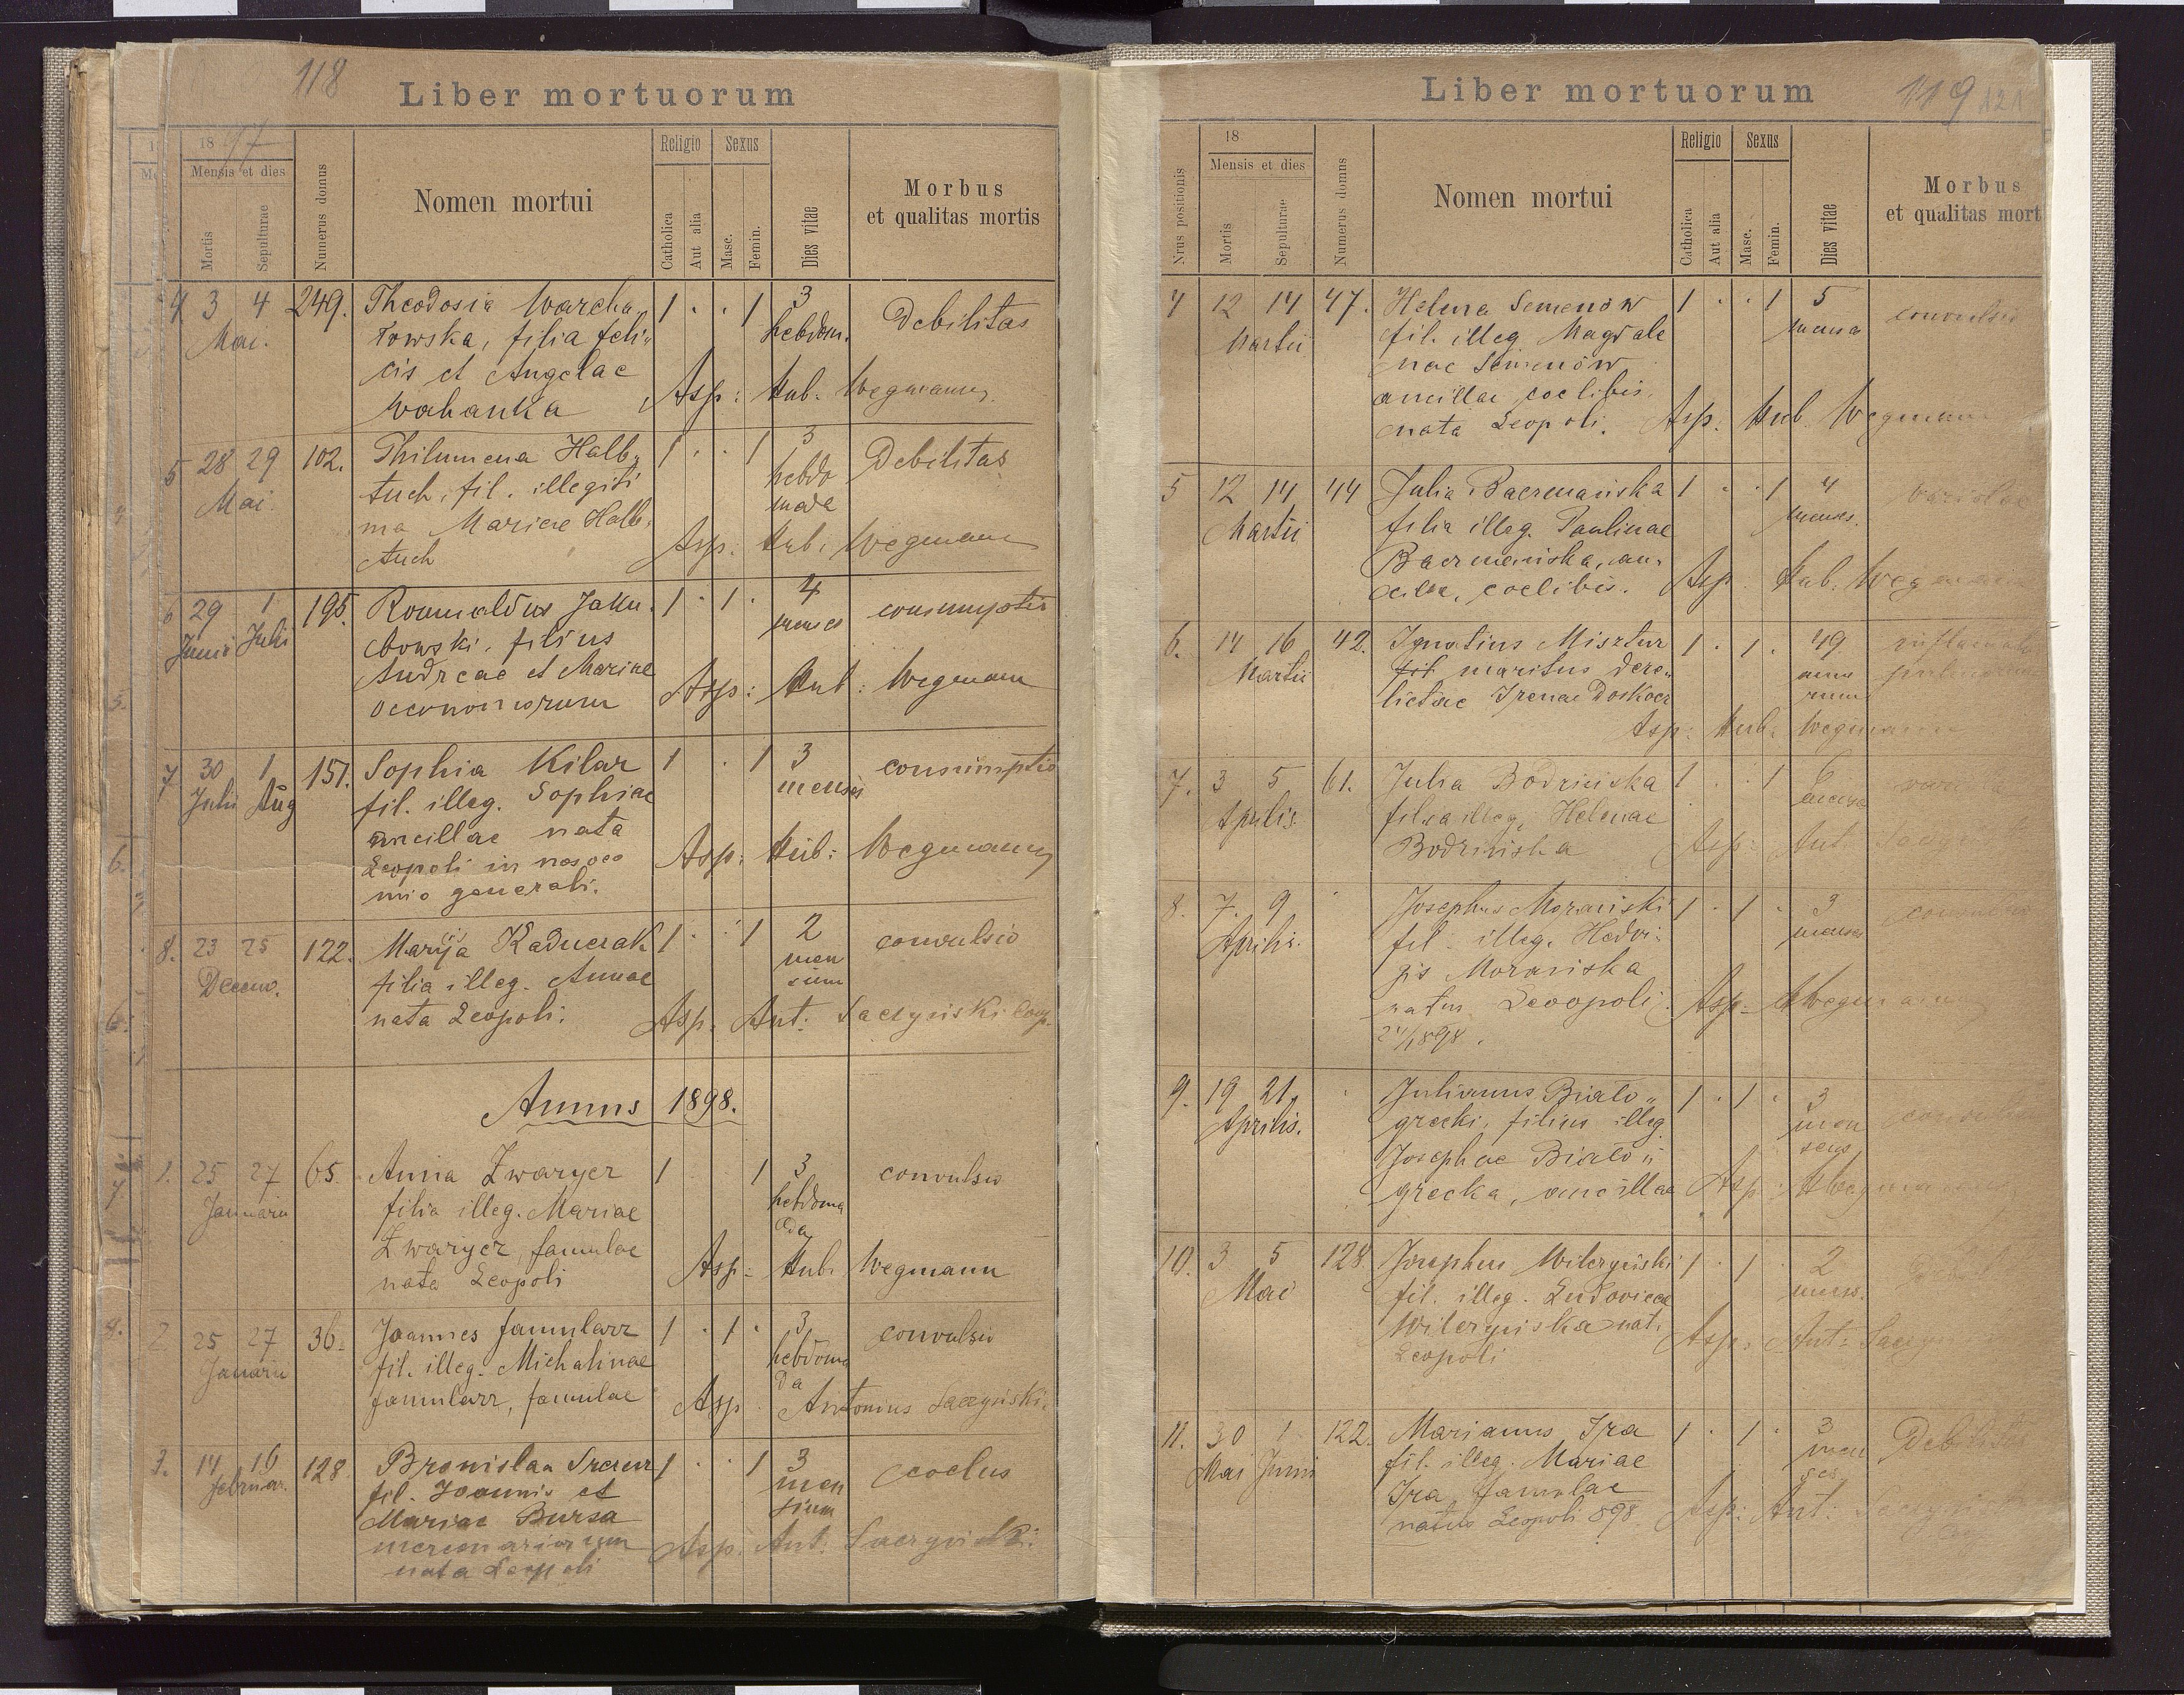 118
Liber mortuorum
1897
Mensis et dies
Mortis
Sepulturae
Numerus domus
Nomen mortui
Religio
Catholica
Aut alia
Sexus
Masc.
Femin.
Dies vitae
Morbus
et qualitas mortis
4 3 4 249. Theodosia Warcha„ 1 · · 1 3 Debilitas
Mai. towska, filia feli„ hebdom.
cis et Angelae
Wahanka Asp: Hub: Wegmann
5 28 29 102. Philumena Halb„ 1 · · 1 3 Debilitas
Mai. tuch, fil. illegiti hebdo
ma Mariae Halb„ mada
tuch Asp: Hub: Wegmann
6 29 1 195. Romualdus Jaku„ 1 · 1 · 4 consumptio
Junii Julii bowski, filius menses
Andreae et Mariae
oeconomorum Asp: Hub: Wegmann
7 30 1 151. Sophia Kilar 1 · · 1 3 consumptio
Julii Aug fil. illeg. Sophiae menses
ancillae nata
Leopoli in nosoco Asp: Hub: Wegmann
mio generali.
8. 23 25 122. Marija Kaducrak 1 · · 1 2 convulsio
Decem. filia illeg. Annae men
sium
nata Leopoli. Asp. Ant: Saczyński Coop.
Annus 1898.
1. 25 27 65. Anna Zwaryer 1 1 3 convulsio
Januarii filia illeg. Mariae hebdoma
da
Zwaryer, famulae Asp: Hub. Wegmann
nata Leopoli
2. 25 27 36. Joannes Jamularz 1 · 1 · 3 convulsio
Januarii fil. illeg. Michalinae hebdoma
da
Jamularz, famulae Asp Antonius Saczyński.
3. 14 16 128 Bronislaa 1 · · 1 3
Februar. fil. Joannis et men
Mariae Bursa sium
mercenariorum Asp: Ant: Saczyński:
nata Leopoli
Liber mortuorum
119 121
Nrus positionis
18
Mensis et dies
Mortis
Sepulturae
Numerus domus
Nomen mortui
Religio
Catholica
Aut alia
Sexus
Masc.
Femin.
Dies vitae
Morbus
et qualitas mort
4 12 14 47. Helena Semenów 1 · · 1 5 convulsio
Martii fil. illeg Magdale mensa
nae Semenów
ancillae coelibis.
nata Leopoli. Asp. Hub Wegmann
5 12 14 44 Julia Bacrmańska 1 · · 1 4
Martii filia illeg. Paulinae menses.
Bacrmańska, an„
cillae, coelibis. Asp Hub: Wegmann
6. 14 16 42. Ignatius Misztur 1 · 1 · 49
Martii fil maritus dere„ anno
rum
lictae Irenae Doskocz
Asp: Hub: Wegmann
7. 3 5 61. Julia Bodrińska 1 · · 1 6
Aprilis. filia illeg. Helenae menses
Bodrińska Asp: Ant:
8. 7. 9 · Josephus Morawski 1 · 1 · 9
Aprilis. fil. illeg. Hedvi„ menses
gis Morawska
natus Leopoli. Asp: HWegmann
2/1 898.
9. 19 21. · Julianus Biało„ 1 · 1 · 3
Aprilis. grecki, filius illeg. men
ses
Josephae Biało„
grecka, ancillae Asp: HWegmann
10. 3 5 128 Josephus Wilczyński 1 · 1 · 2
Mai fil. illeg. Ludovicae mens.
Wilczyńska nat. Asp: Ant: Sacz
Leopoli
11. 30 1 122. Marianus Ira 1 · 1 · 3 Debilitas
Mai Junii fil. illeg. Mariae men
ses
Ira famulae
natus Leopoli 898 Asp: Ant: